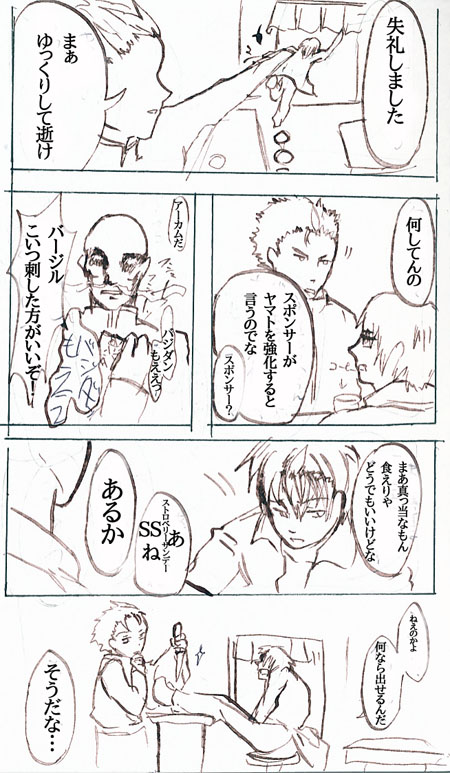 失礼しました
まぁ
ゆっくりして逝け
何してんの
スポンサーが
ヤマトを強化すると
言うのでな
スポンサー？
アーカムだ
バージル
こいつ刺した方がいいぞ！
バジダン
もええっ
まあ真っ当なもん
食えりゃ
どうでもいいけどな
あ
SS
ストロベリーサンデー
ね
あるか
ねえのかよ
何なら出せるんだ
そうだな…